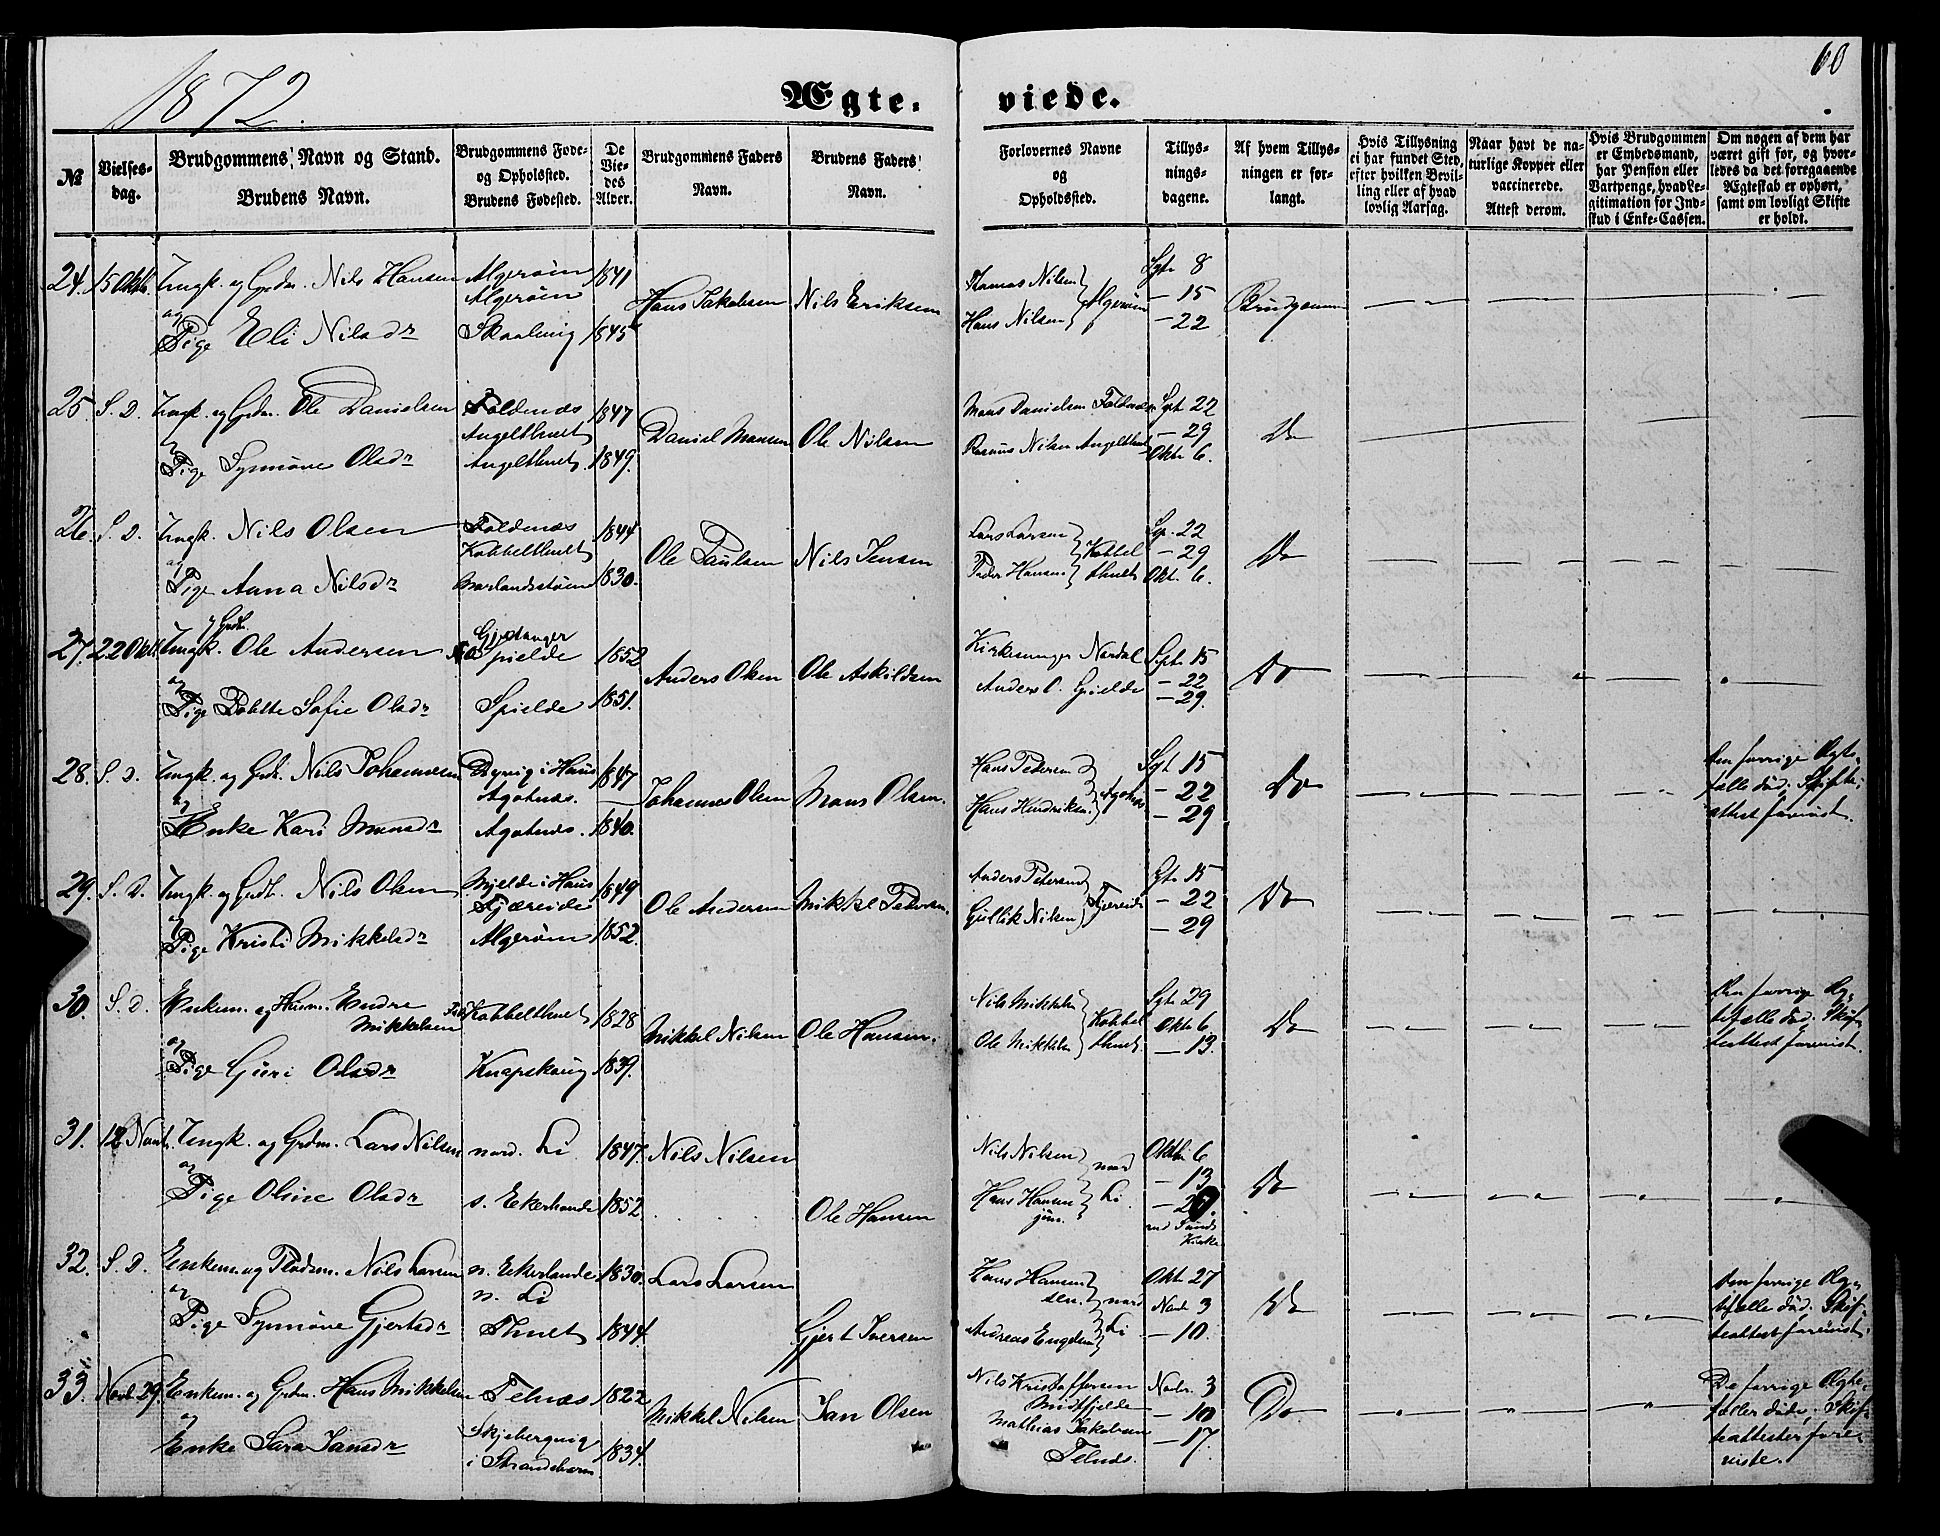 1872.
60
Ægte-
viede.
№
Vielses-
dag.
Brudgommens Navn og Stand.
Brudens Navn.
Brudgommens Føde-
og Opholsfted.
Brudens Fødested.
De
Vie-
des
Alder.
Brudgommens Faders
Navn.
Brudens Faders
Navn.
Forlovernes Navne
og
Opholdssted.
Tillys-
nings-
dagene.
Af hvem Tillys-
ningen er for-
langt.
Hvis Tillysning
ei har fundet Sted,
efter hvilken Bevil-
ling eller af hvad
lovlig Aarsag.
Naar havt de na-
turlige Kopper eller
vaccinerede.
Attest derom.
Hvis Brudgommen
er Embedsmand,
har Pension eller
Vartpenge, hvad Le-
gitimation for Ind-
skud i Enke-Cassen.
Om nogen af dem har
været gift før, og hvor-
ledes da det foregaaende
Ægteskab er ophørt,
samt om lovligt Skifte
er holdt.
24. 15 Oktb. Ungk. og Grdm. Nils Hansen
og
Pige Eli Nilsdr
Algerøin
Algerøin
Skaalvig
1841
1845
Hans Jakobsen
Nils Eriksen
Tomas Nilsen
Hans Nilsen
Algerøin
Sptr 8
— 15
— 22
Brudgommen
25. S. D. Ungk. og Grdm. Ole Danielsen
og
Pige Synnøve Olsdr
Foldenæs
Angelthveit
Angelthveit
1847
1849.
Daniel Monsen
Ole Nilsen
Mons Danielsen Foldnæs
Rasmus Nilsen Angelthveit
Spt 22
— 29
Oktr 6.
Do
26. S. D. Ungk. Nils Olsen
og
Pige Anna Nilsdr
Foldenæs
Kobbelthveit
1844
1830.
Ole Paulsen
Nils Jensen
Lars Larsen
Peder Hansen
Kobbel
thveit
Sp. 22
— 29
Okt. 6.
Do
27. 22 Oktb. Ungk. og Grdb. Ole Andersen
og
Pige Dorthe Sofie Olsdr
Spielde
Spielde
1852
1851.
Anders Olsen
Ole Askildsen
Kirkesanger Nordal
Anders O. Spielde
Sptr 15
— 22
— 29.
Do
28. S. D. Ungk. og Grdb. Nils Johannesen
og
Enke Kari Monsdr
Dyrvig i Haus
Agotnæs.
Agotnæs.
1847
1840.
Johannes Olsen
Mons Olsen.
Hans Pedersen
Hans Hendriksen
Agotnæs
Spt 15
— 22
— 29
Do
Den forrige Ægte-
fælle død; Skifte-
attest forevist.
29. S. D. Ungk. og Grdb. Nils Olsen
og
Pige Kristi Mikkelsdr
Mjelde i Haus
Fjæreide
Algerøin
1849
1852.
Ole Andersen
Mikkel Pedersen.
Anders Petersen
Gullik Nilsen
Fjæreide
Sptr 15
— 22
— 29
Do
30. S. D. Enkem. og Husm. Endre
Mikkelsen
og
Pige Guri Olsdr
Kobbelthveit
Knapskoug
1828
1839.
Mikkel Nilsen
Ole Hansen.
Nils Mikkelsen
Ole Mikkelsen
Kobbel
thveit.
Sptr 29
Oktr 6
— 13.
Do
Den forrige Æg-
tefælle død. Skif-
teattest forevist.
31. 12 Novb. Ungk. og Grdm. Lars Nilsen
og
Pige Oline Olsdr
nord. Li
s. Ekerhovde
1847.
1852.
Nils Nilsen
Ole Hansen
Nils Nilsen
Hans Hansen
jun.
nord
Li.
Oktbr 6
— 13
— 20.
ved Sunds
Kirke
Do
32. S. D. Enkem. og Pladsm. Nils Larsen
og
Pige Synnøve Gjertsdr
n. Ekerhovde
n. Li
Thveit
1830.
1844.
Lars Larsen
Gjert Iversen
Hans Hansen
sen.
nord
Li
Okt. 27
Novb 3
— 10.
Do
Den forrige Æg-
tefælle død. Skif-
teattest forevist.
33. Novb 29. Enkem. og Grdm. Hans Mikkelsen
og
Enke Sara Jansdr
Telnæs
Skjebergvig
i Strandebarm
1822
1834.
Mikkel Nilsen
Jan Olsen
Nils Kristoffersen
Midtfjelde
Mathias Jakobsen
Telnæs.
Novbr. 3
— 10
— 17.
Do
De forrige Ægte-
fæller døde. Skif-
teattester fore-
viste.